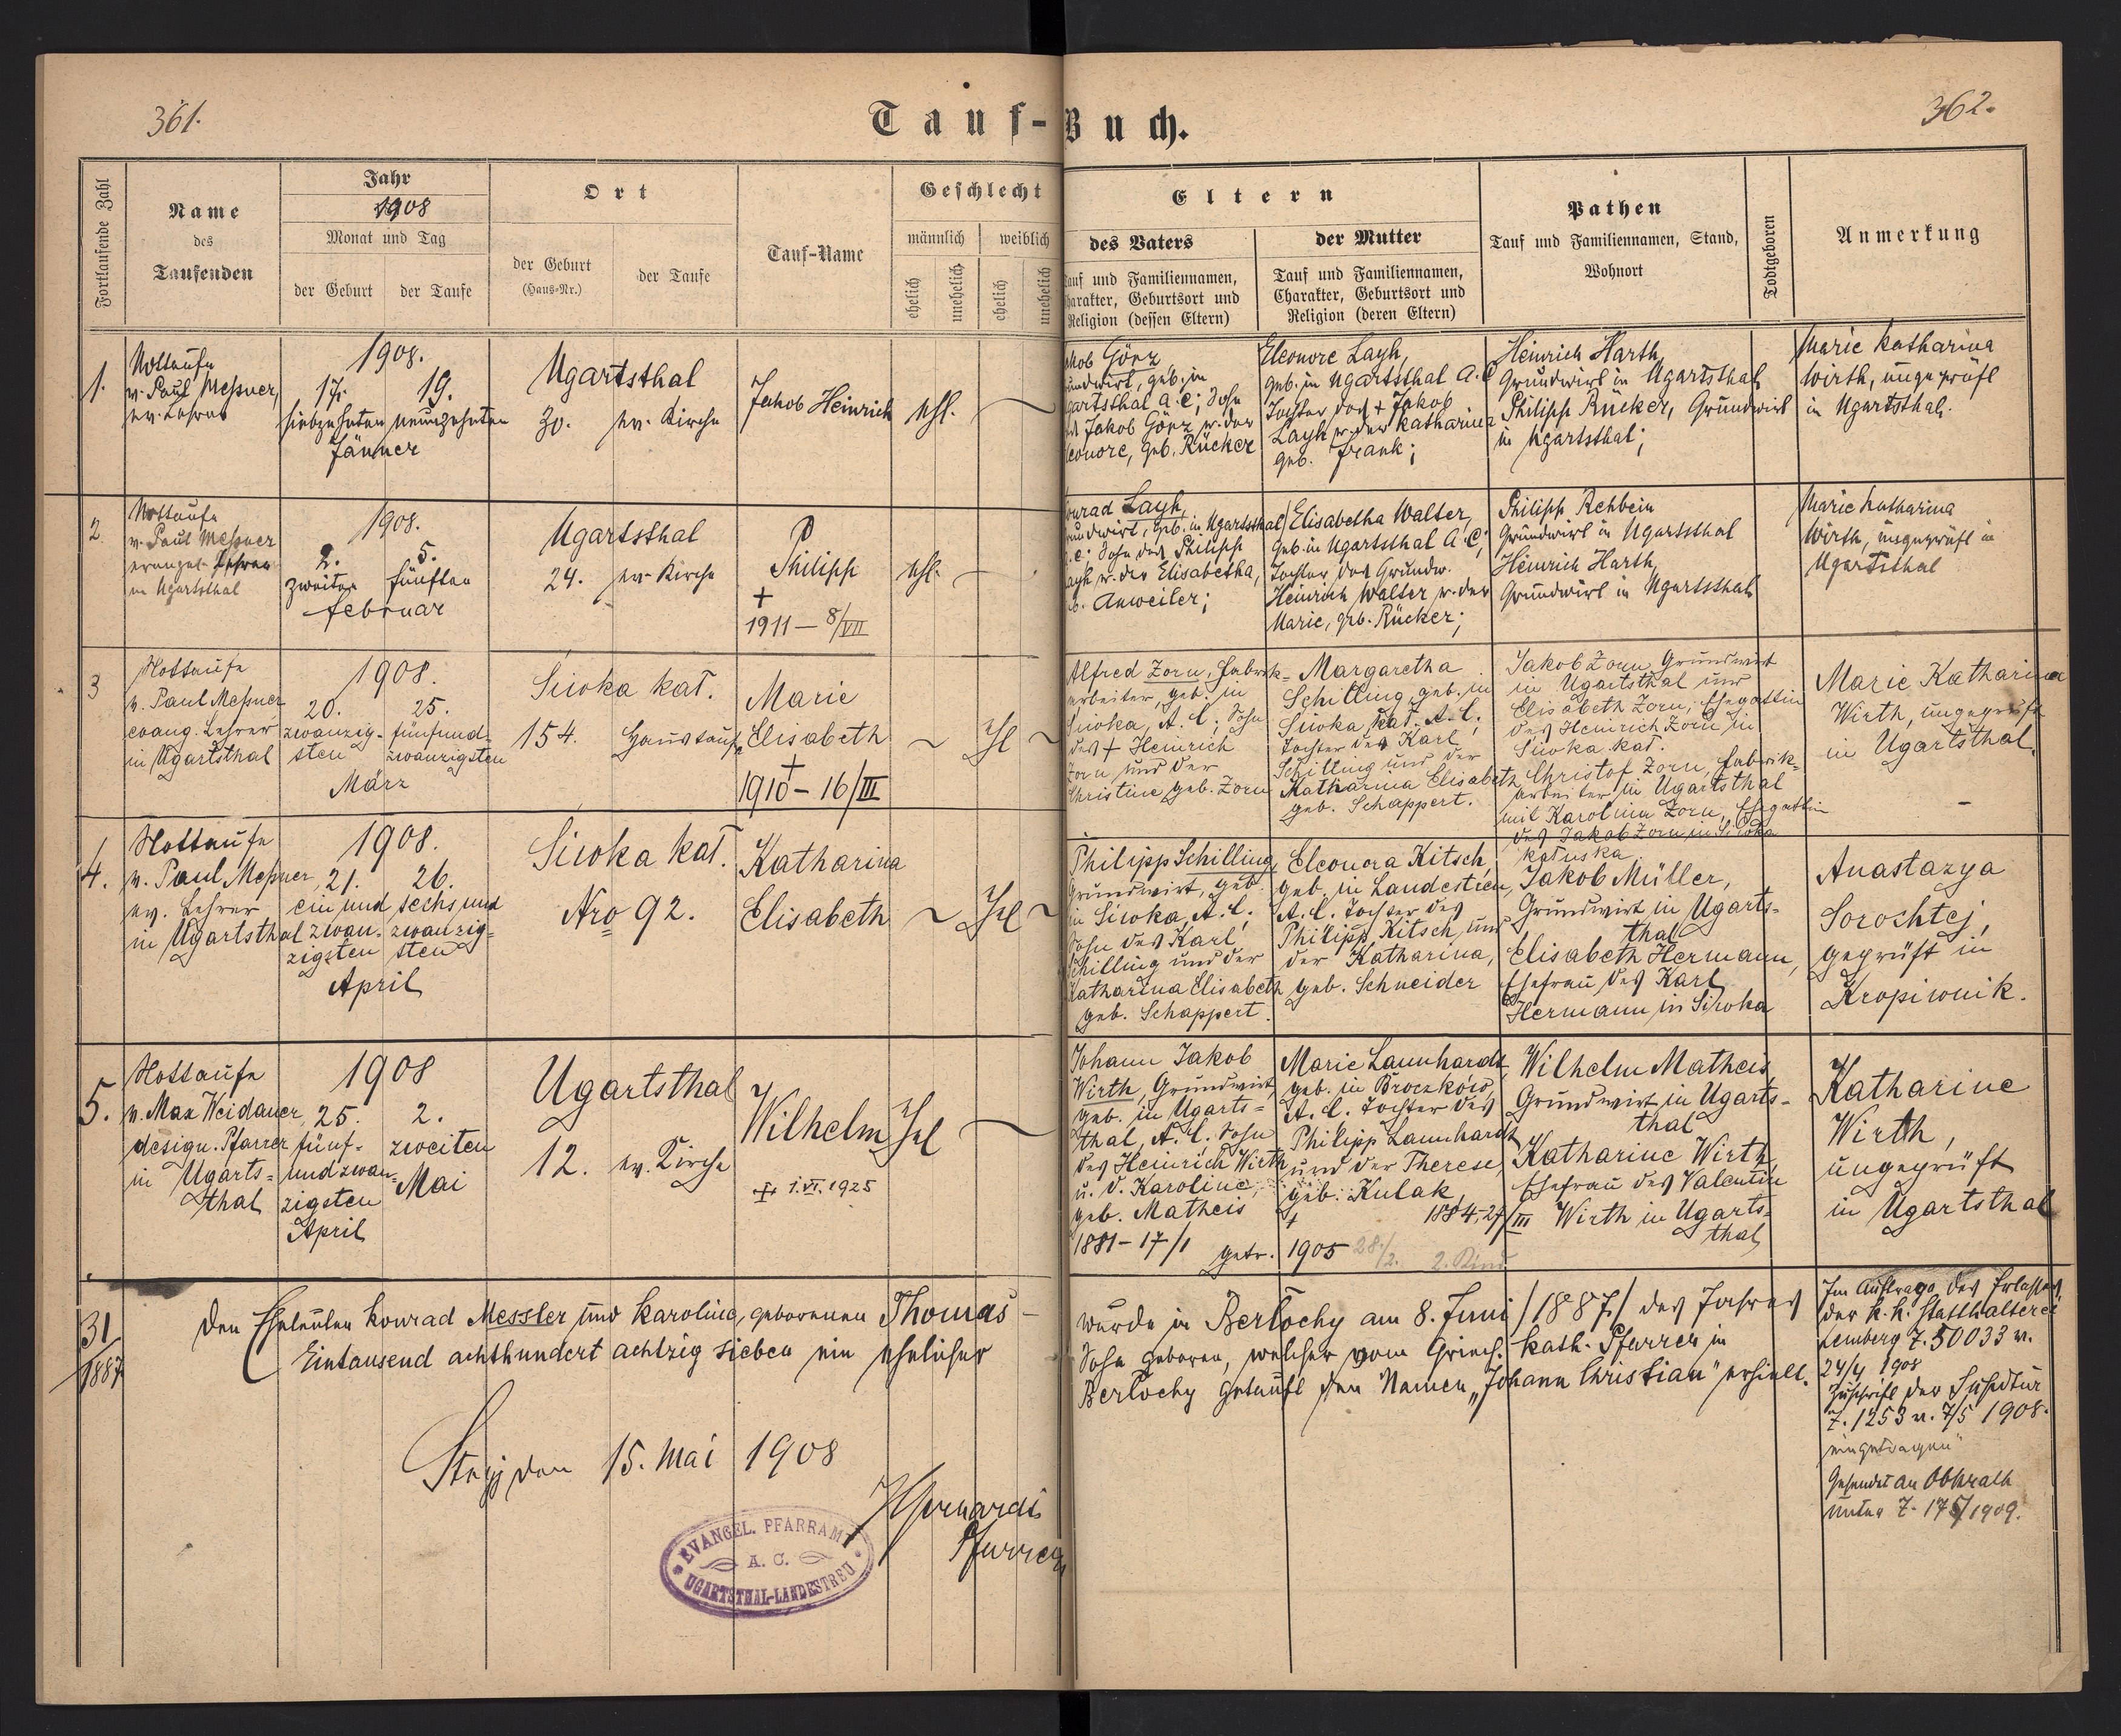 361.
362.
Tauf-Buch.
Fortlaufende Zahl
Name
des
Taufenden
Jahr
1908
Monat und Tag
der Geburt
der Taufe
Ort
der Geburt
(Haus-Nr.)
der Taufe
Tauf-Name
Geschlecht
männlich
weiblich
ehelich
unehelich
ehelich
unehelich
Eltern
des Vaters
Tauf und Familiennamen,
Charakter, Geburtsort und
Religion (dessen Eltern)
der Mutter
Tauf und Familiennamen,
Charakter, Geburtsort und
Religion (deren Eltern)
Pathen
Tauf und Familiennamen, Stand,
Wohnort
Todtgeboren
Anmerkung
1.
Nottaufe
v. Paul Meßner,
ev. Lehrer
1908.
17. 19.
siebzehnten neunzehnten
Jänner
Ugartsthal
30. ev. Kirche
Jakob Heinrich
ehl.
Jakob Görz
Grundwirt, geb. in
Ugartsthal A.C; Sohn
des Jakob Görz u. der
Eleonore, geb. Rücker
Eleonore Layh,
geb. in Ugartsthal A.C
Tochter des + Jakob
Layh u. der Katharina
geb. Frank;
Heinrich Harth,
Grundwirt in Ugartsthal
Philipp Rücker, Grundwirt
in Ugartsthal;
Marie Katharina
Wirth, ungeprüft
in Ugartsthal.
2
Nottaufe
v. Paul Messner
evangel. Lehrer
in Ugartsthal
1908.
2. 5.
zweiten fünften
Februar
Ugartsthal
24. ev. Kirche
Philipp
+
1911 – 8/VII
ehl.
Konrad Layh,
Grundwirt, geb. in Ugartsthal
A.C. Sohn des Philipp
Layh u. der Elisabetha,
geb. Anweiler;
Elisabetha Walter,
geb. in Ugartsthal A.C;
Tochter des Grundw.
Heinrich Walter u. der
Marie, geb. Rücker;
Philipp Rehbein
Grundwirt in Ugartsthal
Heinrich Harth,
Grundwirt in Ugartsthal
Marie Katharina
Wirth, ungeprüft in
Ugartsthal
3
Nottaufe
v. Paul Meßner
evang. Lehrer
in Ugartsthal
1908.
20. 25.
zwanzig- fünfund-
sten zwanzigsten
März
Siwka kał.
154. Haustaufe
Marie
Elisabeth
+
1910 – 16/III
Ehl
Alfred Zorn, Fabrik-
arbeiter, geb. in
Siwka, A.C.; Sohn
des + Heinrich
Zorn und der
Christine, geb. Zorn
Margaretha
Schilling, geb. in
Siwka kał. A.C.
Tochter des Karl
Schilling und der
Katharina Elisabeth
geb. Schappert.
Jakob Zorn, Grundwirt
in Ugartsthal und
Elisabeth Zorn, Ehegattin
des Heinrich Zorn in
Siwka kał.
Christof Zorn, Fabrik-
arbeiter in Ugartsthal
mit Karolina Zorn, Ehegattin
des Jakob Zorn in Siwka
kałuska
Marie Katharina
Wirth, ungeprüft
in Ugartsthal.
4.
Nottaufe
v. Paul Meßner,
ev. Lehrer
in Ugartsthal
1908.
21. 26.
ein und sechs und
zwan- zwanzig-
zigsten sten
April
Siwka kał.
Nro 92.
Katharina
Elisabeth
Ehl
Philipp Schilling
Grundwirt, geb.
in Siwka, A.C.,
Sohn des Karl
Schilling und der
Katharina Elisabeth
geb. Schappert.
Eleonora Kitsch,
geb. in Landestreu,
A.C. Tochter des
Philipp Kitsch und
der Katharina,
geb. Schneider
Jakob Müller,
Grundwirt in Ugarts-
thal
Elisabeth Hermann,
Ehefrau des Karl
Hermann in Siwka
Anastazya
Sorochtej,
geprüft in
Kropiwnik.
5.
Nottaufe
v. Max Weidauer,
design. Pfarrer
in Ugarts-
thal
1908
25. 2.
fünf- zweiten
und zwan-
zigsten Mai
April
Ugartsthal
12. ev. Kirche
Wilhelm
+ 1.VI.1925
Ehl
Johann Jakob
Wirth, Grundwirt
geb. in Ugarts-
thal, A.C. Sohn
des Heinrich Wirth
u. d. Karoline,
geb. Matheis
1881 – 17/1
Marie Launhardt,
geb. in Broczków,
A.C. Tochter des
Philipp Launhardt
und der Therese,
geb. Kulak,
1884, 27/III
getr. 1905 28/2. 2. Kind
Wilhelm Matheis,
Grundwirt in Ugarts-
thal
Katharine Wirth
Ehefrau des Valentin
Wirth in Ugarts-
thal
Katharine
Wirth,
ungeprüft
in Ugartsthal
31/1887
Den Eheleuten Konrad Messler und Karolina, geborenen Thomas – wurde in Berłochy am 8. Juni /1887/ des Jahres
Eintausend achthundert achtzig sieben ein ehelicher Sohn geboren, welcher vom Griech. kath. Pfarrer in
Berłochy getauft den Namen „Johann Christian" erhielt.
Im Auftrage des Erlasses,
der k.k. Statthalterei
Lemberg Z. 50033 v.
24/4 1908
Zuschrift der
Z. 1253 v. 7/5 1908.
eingetragen
Gesendet an
unter Z. 175/1909.
Stryj den 15. Mai 1908
Pfarrer
EVANGEL. PFARRAMT
A. C.
UGARTSTHAL-LANDESTREU